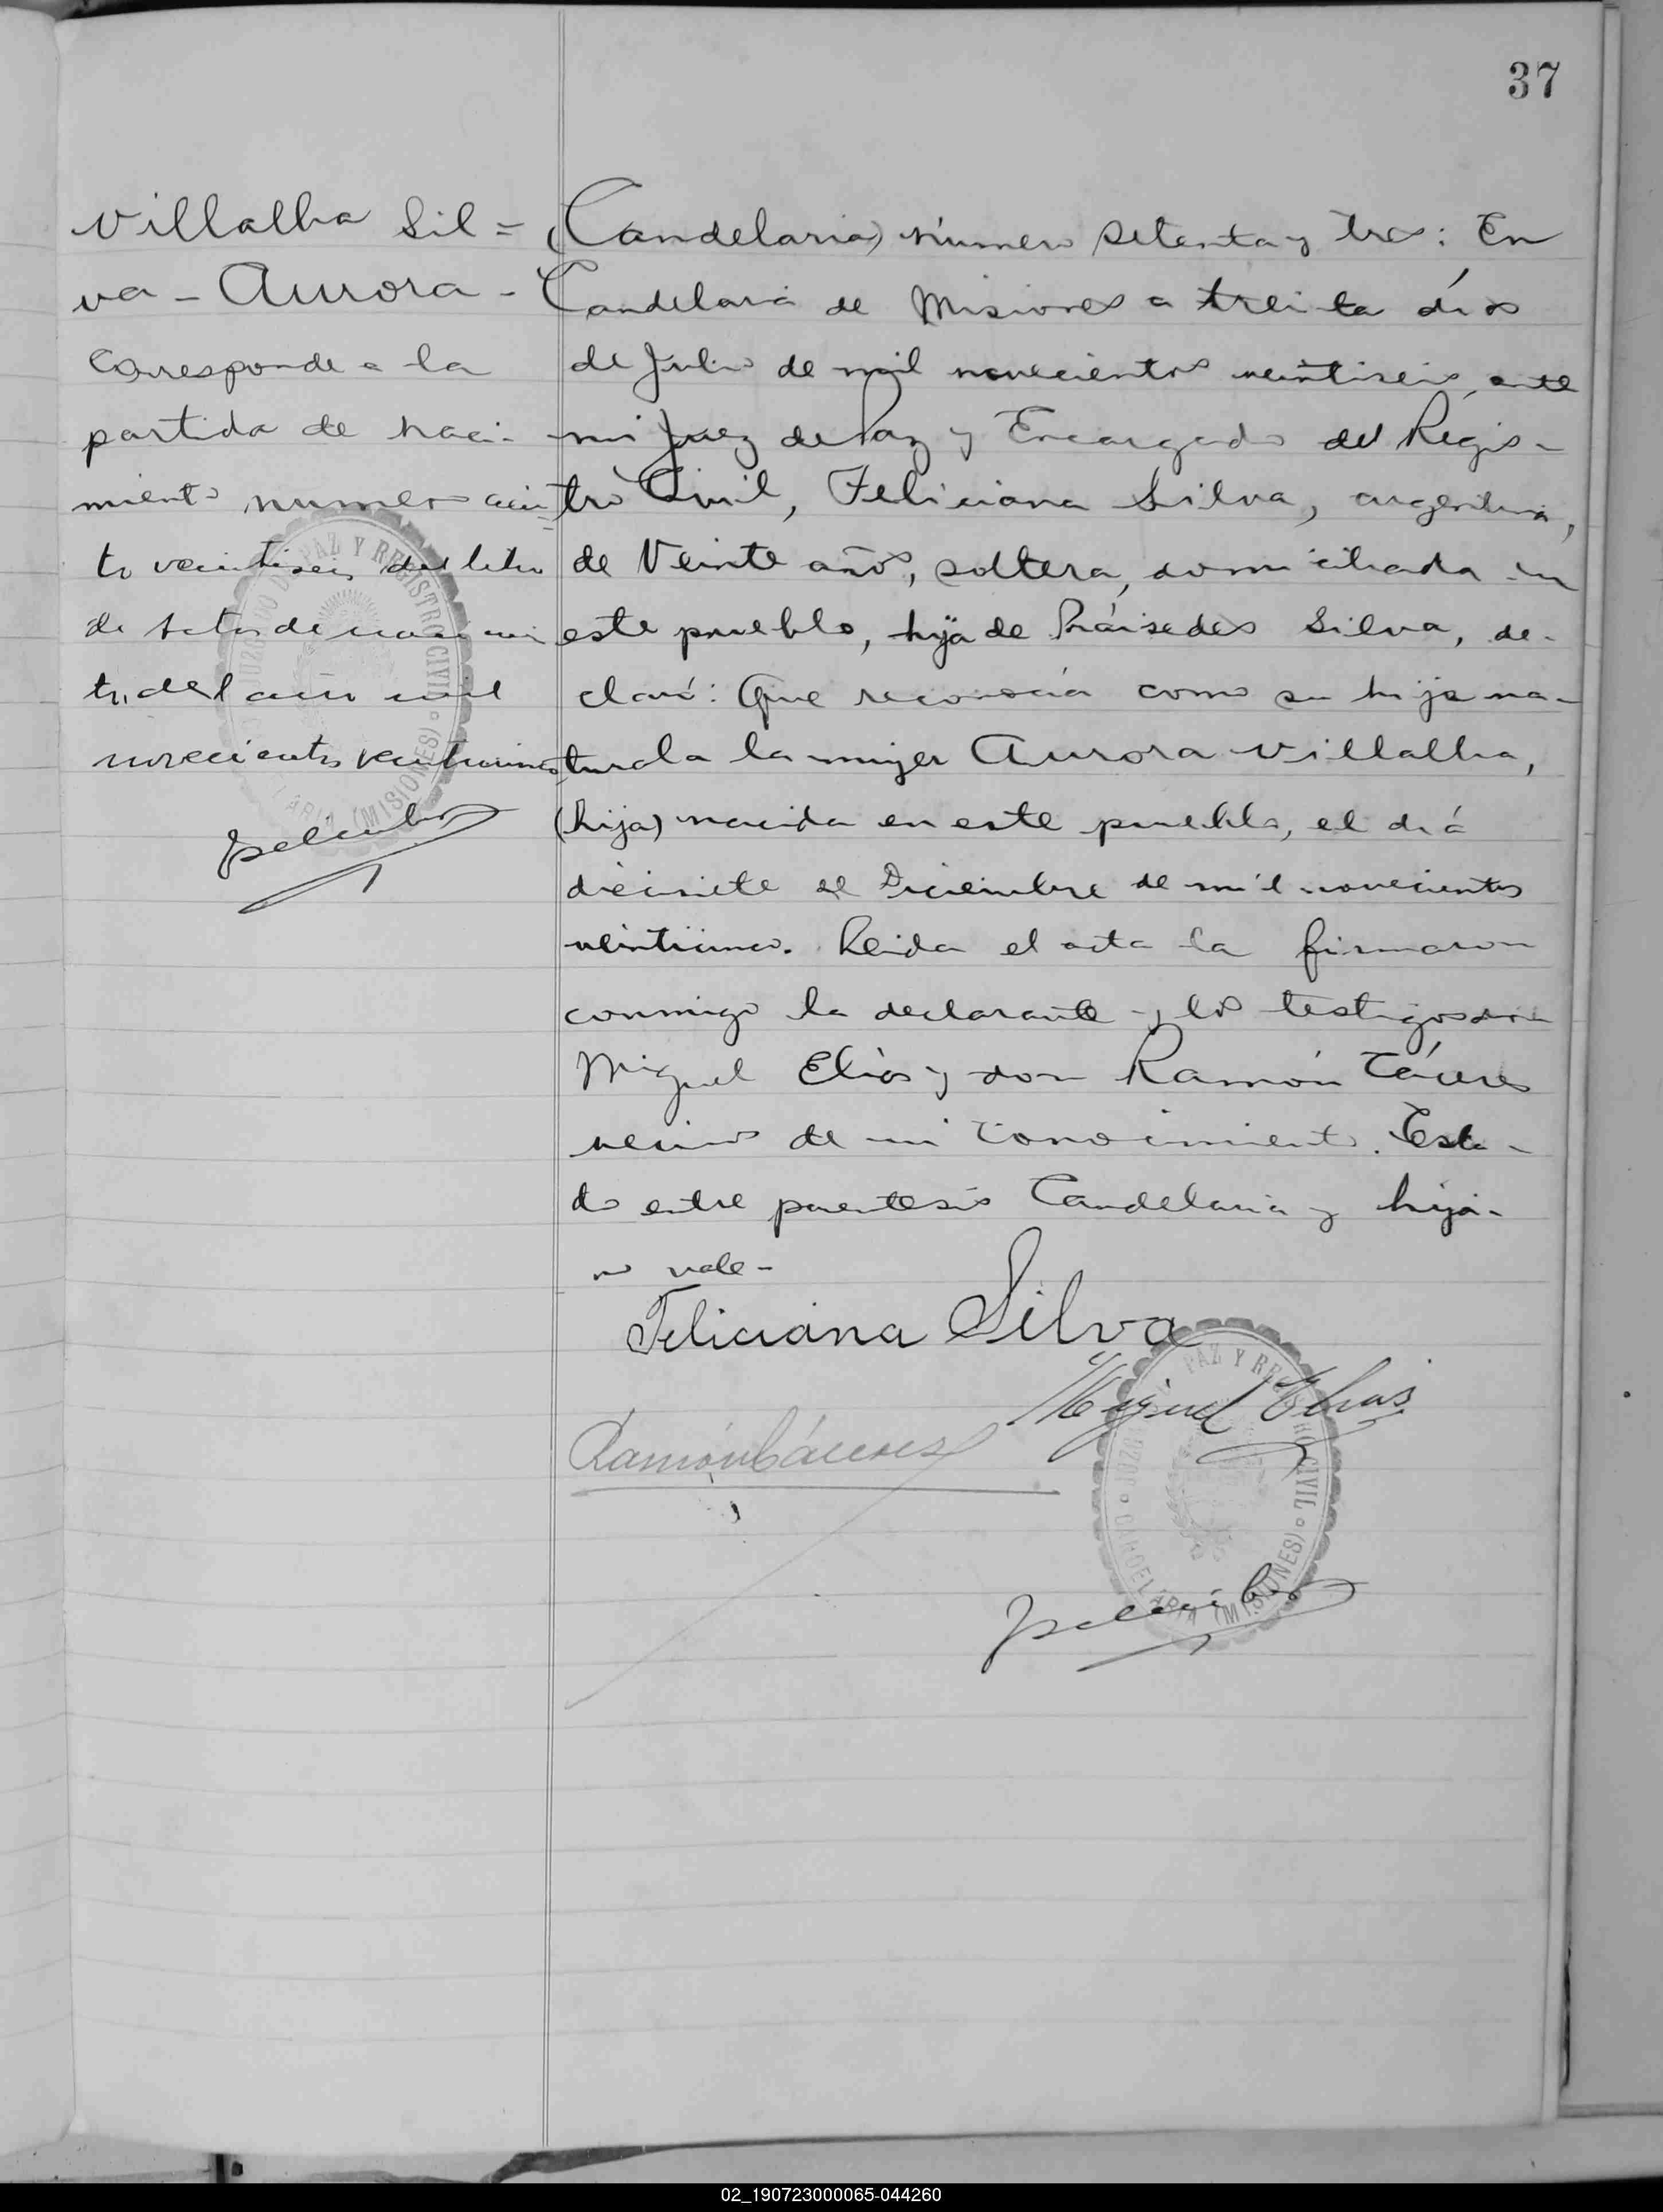 37
Villalba Sil=
va - Aurora -
Corresponde a la
partida de naci-
miento numero cien=
to veintiseis del libro
de
tos del año mil
novecientos
(Candelaria) número setenta y tres: En
Candelaria de Misiones a treinta días
de Julio de mil novecientos veintiseis, ante
mi Juez de Paz y Encargado del Regis-
tro Civil, Feliciana Silva, argentina,
de Veinte años, soltera, domiciliada en
este pueblo, hija de Práisedes Silva, de-
claró: Que reconocía como su hija na-
tural a la mujer Aurora Villalba,
(hija) nacida en este pueblo, el día
diecisiete de Diciembre de mil novecientos
veintiuno. Leida el acta la firmaron
conmigo la declarante y los testigos don
Miguel Elías y don Ramón Cáceres
vecinos de mi conocimiento. Esta-
do entre parentesis Candelaria y hija-
no vale -
Feliciana Silva
Miguel Elias
Ramón Cáceres
JUZGADO DE PAZ Y REGISTRO CIVIL
CANDELARIA (MISIONES)
JUZGADO DE PAZ Y REGISTRO CIVIL
CANDELARIA (MISIONES)
02_190723000065-044260